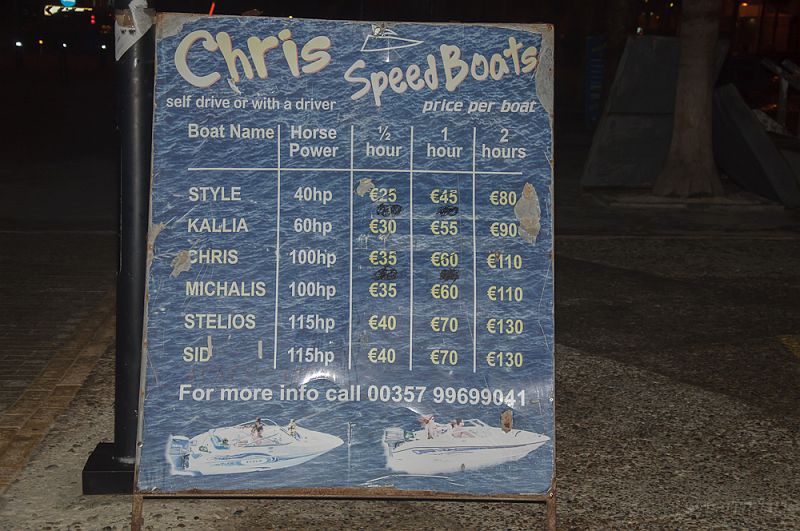 Chris SpeedBoats
self drive or with a driver price per boat
Boat Name Horse Power ½ hour 1 hour 2 hours
STYLE 40hp €25 €45 €80
KALLIA 60hp €30 €55 €90
CHRIS 100hp €35 €60 €110
MICHALIS 100hp €35 €60 €110
STELIOS 115hp €40 €70 €130
SID 115hp €40 €70 €130
For more info call 00357 99699041